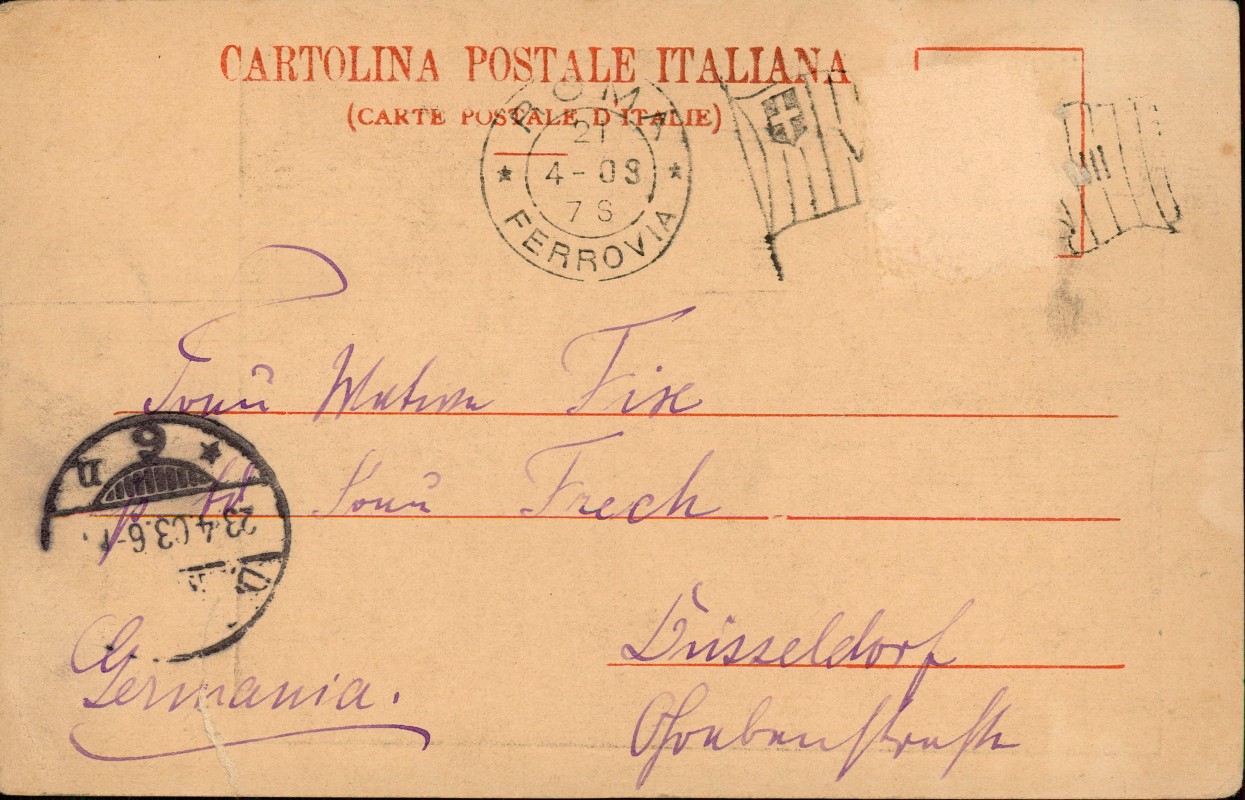 CARTOLINA POSTALE ITALIANA
(CARTE POSTALE D'ITALIE)
ROMA
21
4-03
7S
FERROVIA
Frau Witwe Fise
Frau Frech
23.4.03.6-
Düsseldorf
Germania.
Grabenstraße